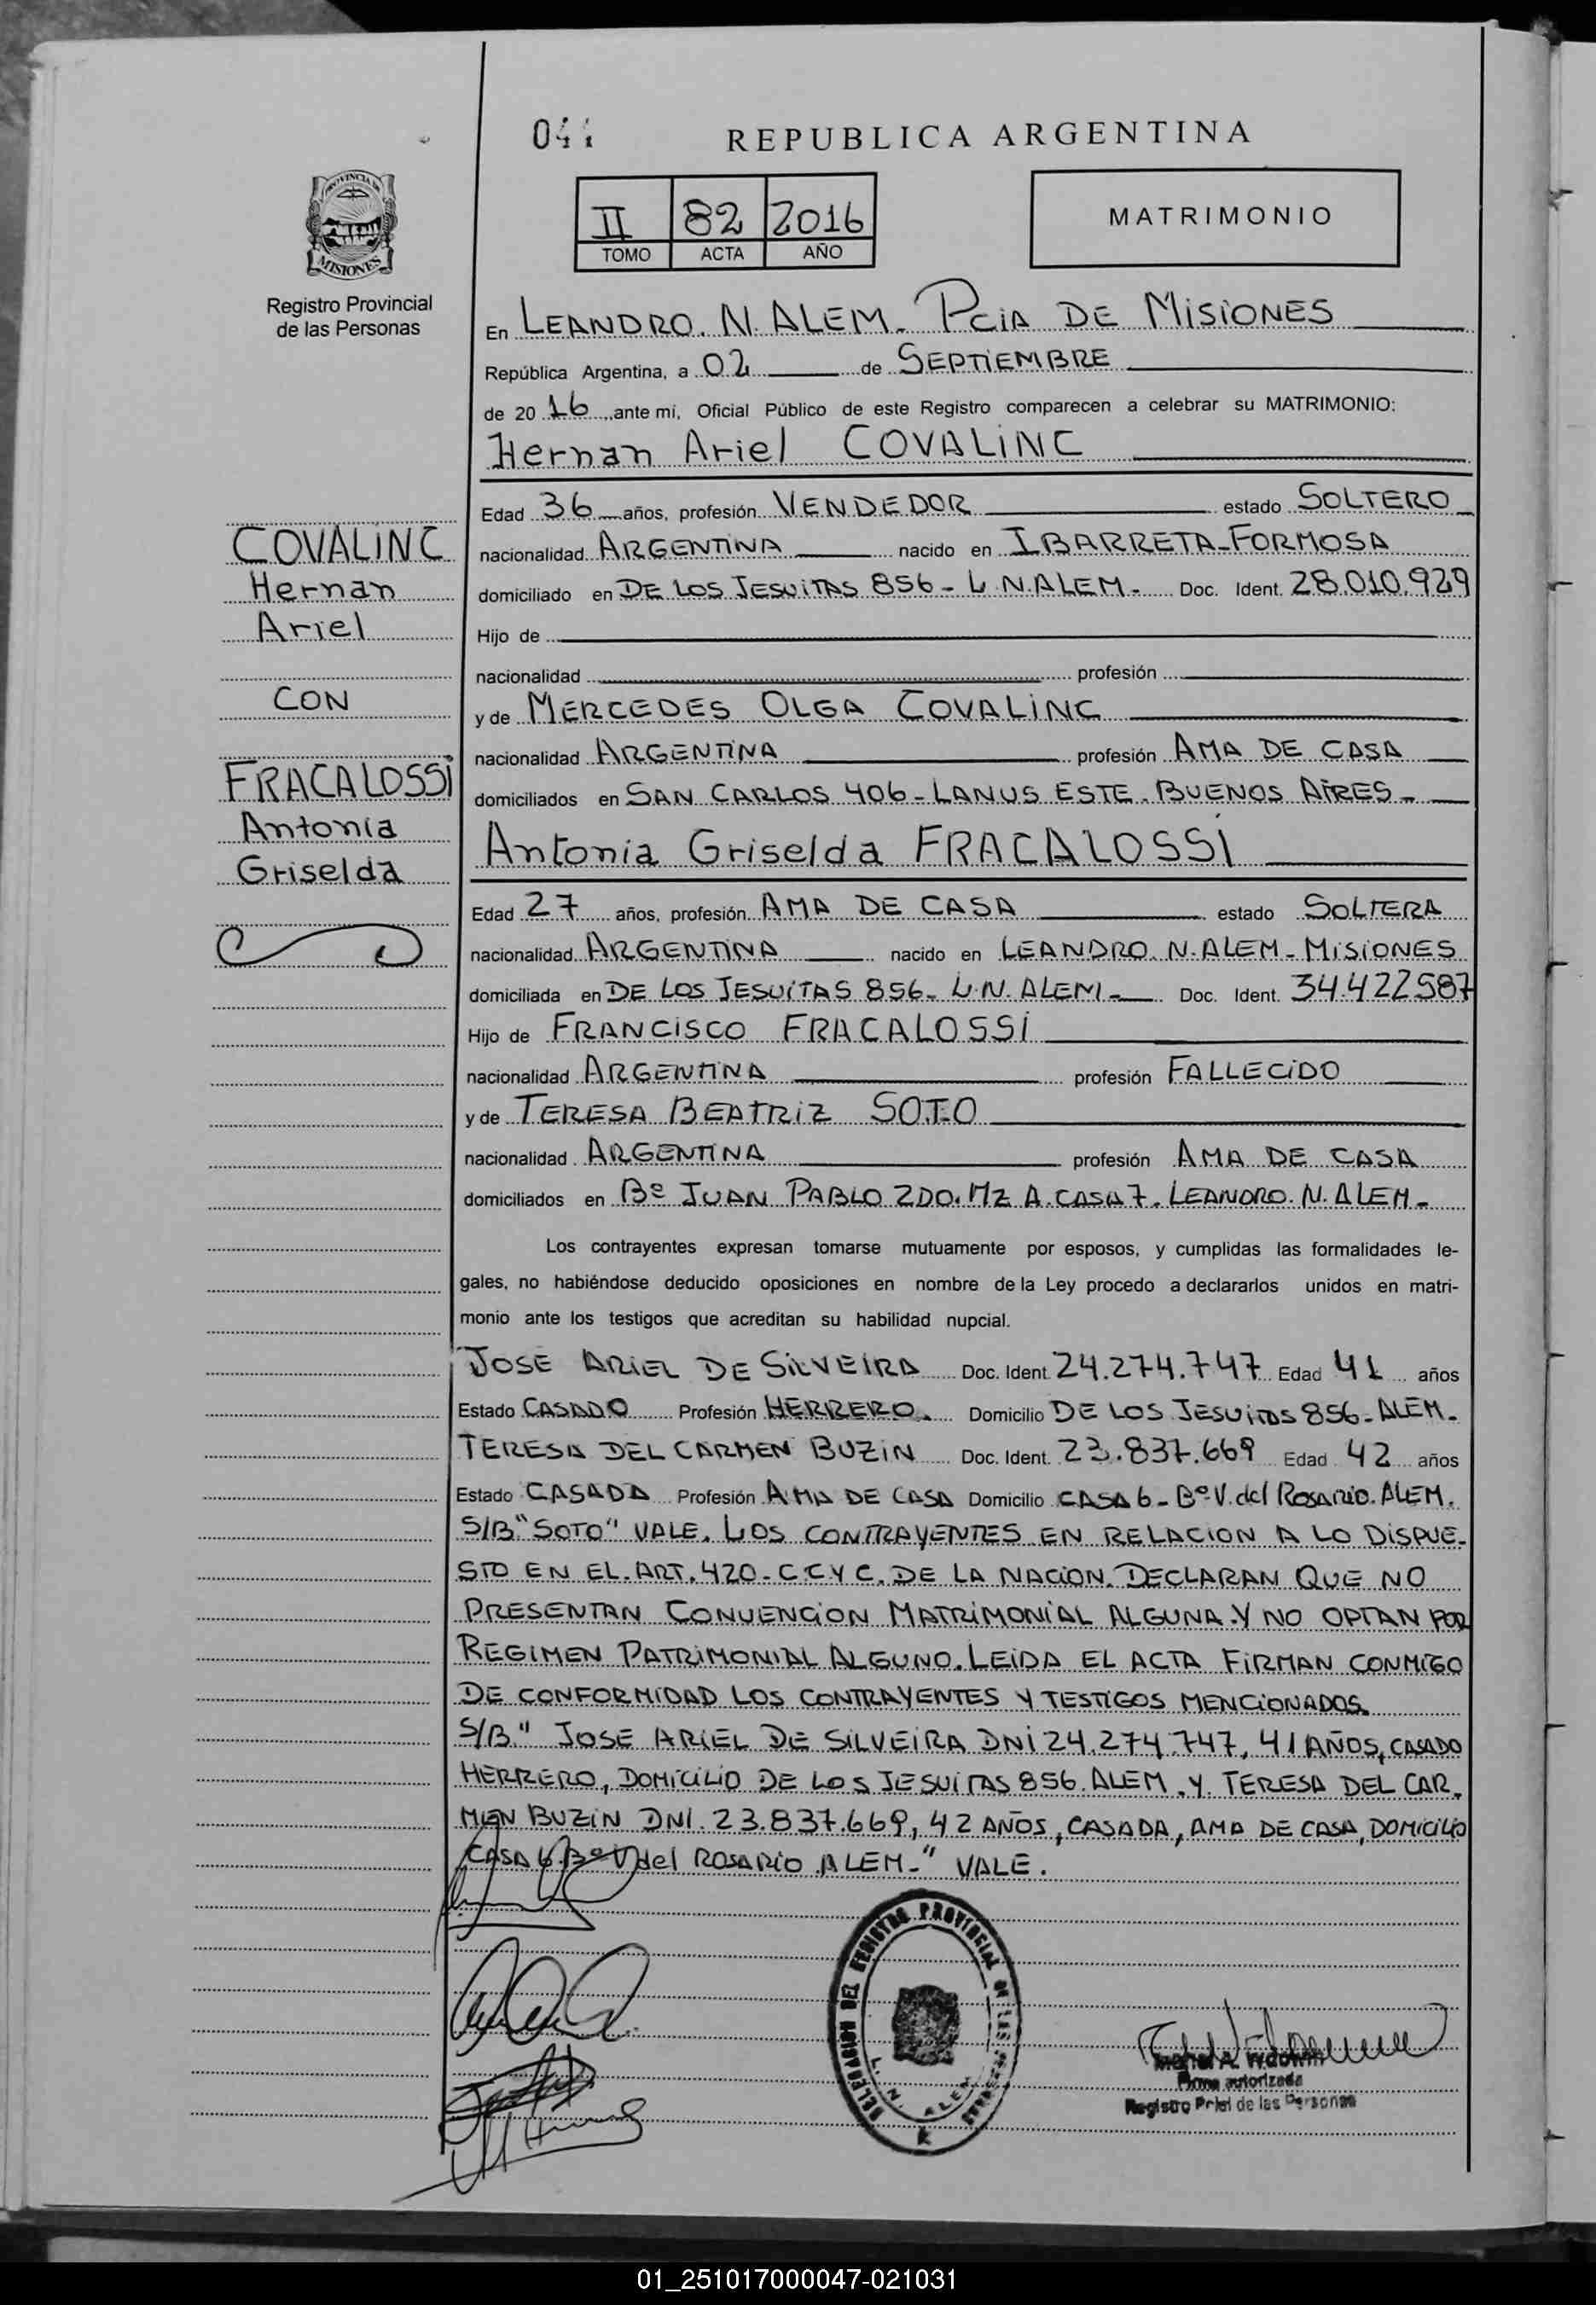 044
REPUBLICA ARGENTINA
PROVINCIA DE
MISIONES
Registro Provincial
de las Personas
II 82 2016
TOMO ACTA AÑO
MATRIMONIO
En LEANDRO. N. ALEM. PCIA DE MISIONES
República Argentina, a 02 de SEPTIEMBRE
de 20 16 ante mi, Oficial Público de este Registro comparecen a celebrar su MATRIMONIO:
Hernan Ariel COVALINC
Edad 36 años, profesión VENDEDOR estado SOLTERO
nacionalidad ARGENTINA nacido en IBARRETA-FORMOSA
domiciliado en DE LOS JESUITAS 856 - L.N.ALEM- Doc. Ident. 28.010.929
Hijo de
nacionalidad profesión
y de MERCEDES OLGA COVALINC
nacionalidad ARGENTINA profesión AMA DE CASA
domiciliados en SAN CARLOS 406 - LANUS ESTE. BUENOS AIRES -
Antonia Griselda FRACALOSSI
Edad 27 años, profesión AMA DE CASA estado SOLTERA
nacionalidad ARGENTINA nacido en LEANDRO. N. ALEM - MISIONES
domiciliada en DE LOS JESUITAS 856 - L.N. ALEM - Doc. Ident. 34.422587
Hijo de FRANCISCO FRACALOSSI
nacionalidad ARGENTINA profesión FALLECIDO
y de TERESA BEATRIZ SOTO
nacionalidad ARGENTINA profesión AMA DE CASA
domiciliados en Bº JUAN PABLO 2DO. MZ A. CASA 7. LEANDRO. N. ALEM -
COVALINC
Hernan
Ariel
CON
FRACALOSSI
Antonia
Griselda
Los contrayentes expresan tomarse mutuamente por esposos, y cumplidas las formalidades le-
gales, no habiéndose deducido oposiciones en nombre de la Ley procedo a declararlos unidos en matri-
monio ante los testigos que acreditan su habilidad nupcial.
JOSE ARIEL DE SILVEIRA Doc. Ident 24.274.747 Edad 41 años
Estado CASADO Profesión HERRERO. Domicilio DE LOS JESUITAS 856 - ALEM.
TERESA DEL CARMEN BUZIN Doc. Ident. 23.837.669 Edad 42 años
Estado CASADA Profesión AMA DE CASA Domicilio CASA 6 - Bº V. del ROSARIO. ALEM.
S/B "SOTO" VALE. LOS CONTRAYENTES EN RELACION A LO DISPUE-
STO EN EL. ART. 420 - C.C.Y C. DE LA NACION. DECLARAN QUE NO
PRESENTAN CONVENCION MATRIMONIAL ALGUNA. Y NO OPTAN POR
REGIMEN PATRIMONIAL ALGUNO. LEIDA EL ACTA FIRMAN CONMIGO
DE CONFORMIDAD LOS CONTRAYENTES Y TESTIGOS MENCIONADOS.
S/B " JOSE ARIEL DE SILVEIRA DNI 24.274.747, 41 AÑOS, CASADO
HERRERO, DOMICILIO DE LOS JESUITAS 856. ALEM. Y TERESA DEL CAR-
MEN BUZIN DNI. 23.837.669, 42 AÑOS, CASADA, AMA DE CASA, DOMICILIO
CASA 6. Bº V del ROSARIO ALEM-" VALE.
DELEGACION DEL REGISTRO PROVINCIAL DE LAS PERSONAS
L. N. ALEM
Firma autorizada
Registro Prial de las Personas
01_251017000047-021031